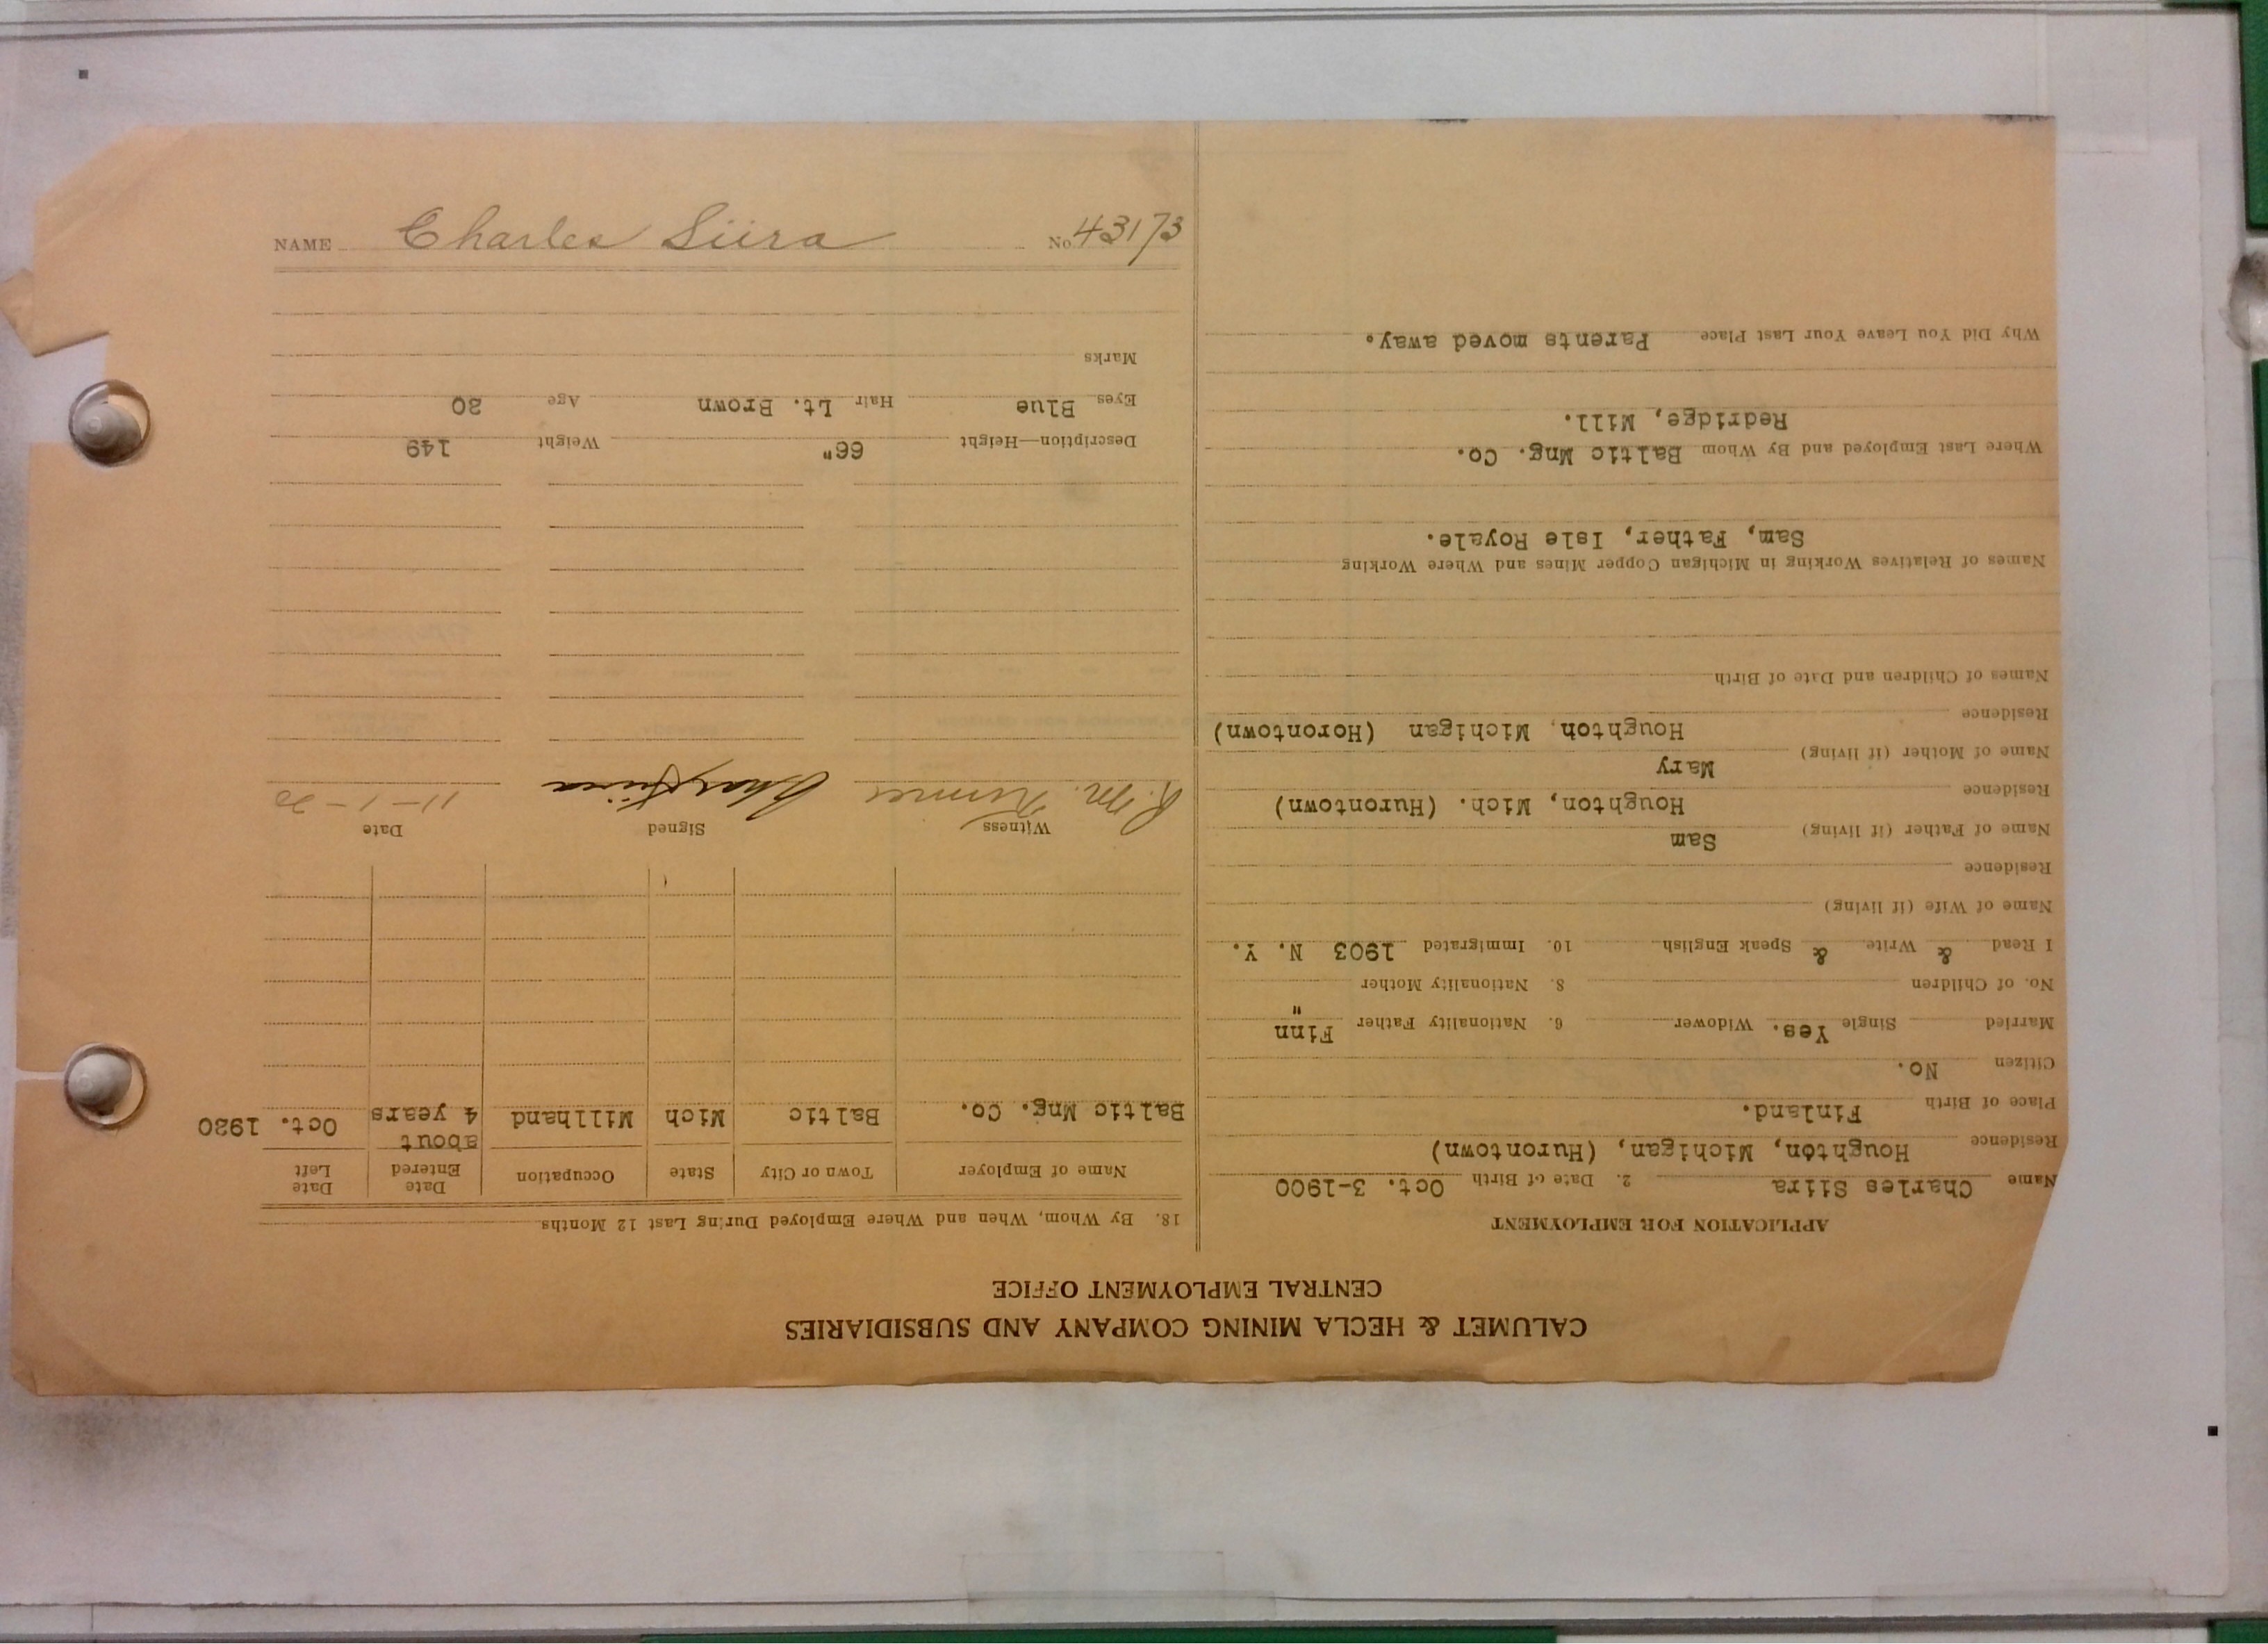 NAME Charles Siira No. 43173
CALUMET & HECLA MINING COMPANY AND SUBSIDIARIES
CENTRAL EMPLOYMENT OFFICE
APPLICATION FOR EMPLOYMENT
Name Charles Siira 2. Date of Birth Oct. 3-1900
Residence Houghton, Michigan, (Hurontown)
Place of Birth Finland.
Citizen No.
Married Single Yes. Widower 6. Nationality Father Finn
No. of Children 8. Nationality Mother "
I Read & Write & Speak English 10. Immigrated 1903 N. Y.
Name of Wife (if living)
Residence
Name of Father (if living) Sam
Residence Houghton, Mich. (Hurontown)
Name of Mother (if living) Mary
Residence Houghton, Michigan (Horontown)
Names of Children and Date of Birth
Names of Relatives Working in Michigan Copper Mines and Where Working
Sam, Father, Isle Royale.
Where Last Employed and By Whom Baltic Mng. Co.
Redridge, Mill.
Why Did You Leave Your Last Place Parents moved away.
18. By Whom, When and Where Employed During Last 12 Months
Name of Employer Town or City State Occupation Date Entered Date Left
Baltic Mng. Co. Baltic Mich Millhand about 4 years Oct. 1920
Witness Signed Date
R. M. Chas Siira 11-1-20
Description—Height 66" Weight 149
Eyes Blue Hair Lt. Brown Age 20
Marks